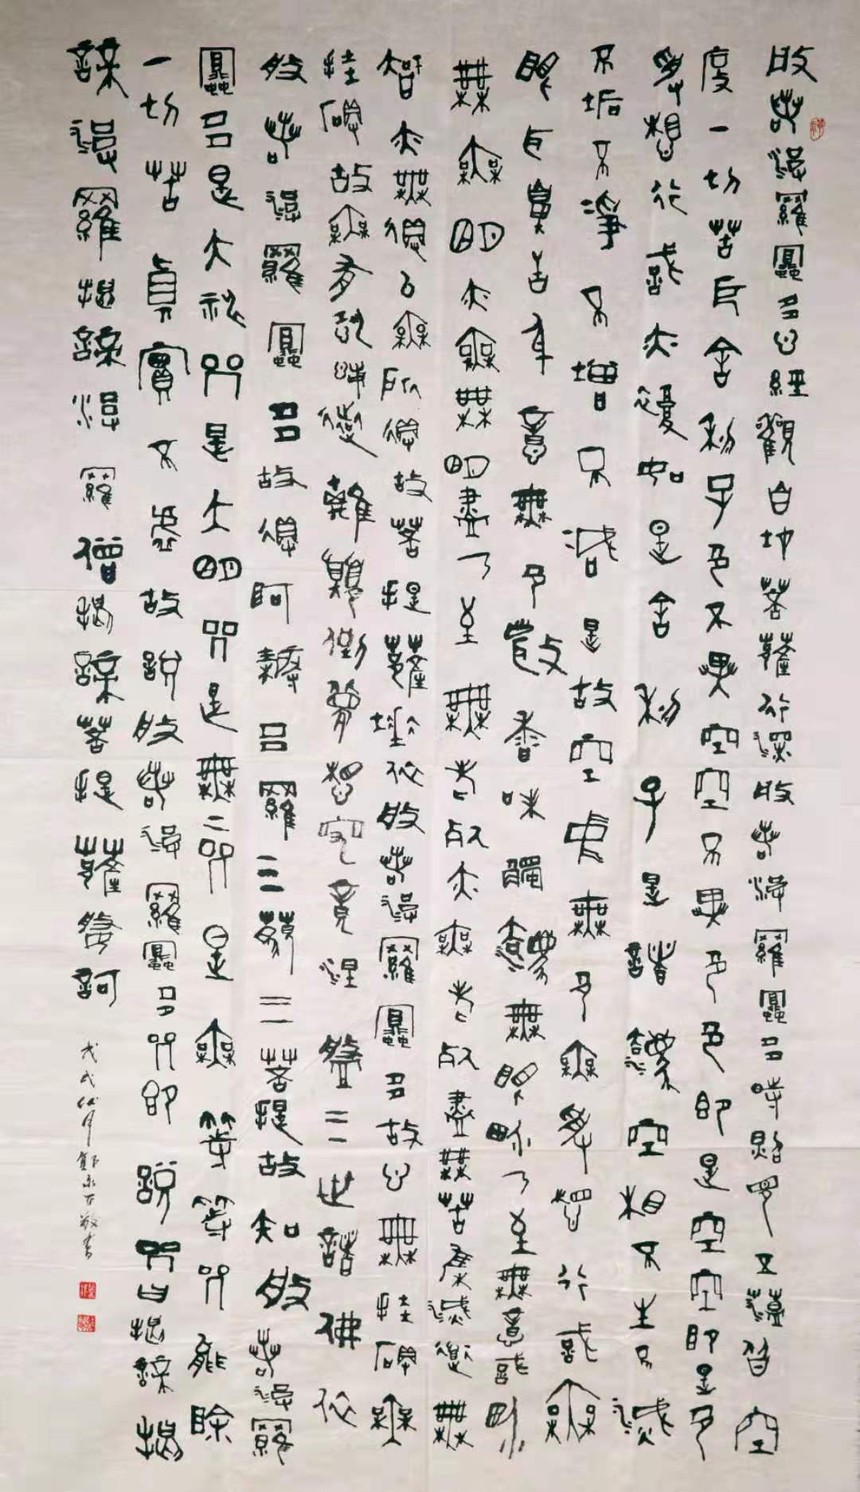 般若波羅蜜多心經觀自在菩薩行深般若波羅蜜多時照見五蘊皆空
度一切苦厄舍利子色不異空空不異色色即是空空即是色
受想行識亦復如是舍利子是諸法空相不生不滅
不垢不淨不增不減是故空中無色無受想行識無
眼耳鼻舌身意無色聲香味觸法無眼界乃至無意識界
無無明亦無無明盡乃至無老死亦無老死盡無苦集滅道無
智亦無得以無所得故菩提薩埵依般若波羅蜜多故心無罣礙無
罣礙故無有恐怖遠離顛倒夢想究竟涅槃三世諸佛依
般若波羅蜜多故得阿耨多羅三藐三菩提故知般若波羅
蜜多是大神咒是大明咒是無上咒是無等等咒能除
一切苦真實不虛故說般若波羅蜜多咒即說咒曰揭諦揭
諦波羅揭諦波羅僧揭諦菩提薩婆訶
戊戌敬書